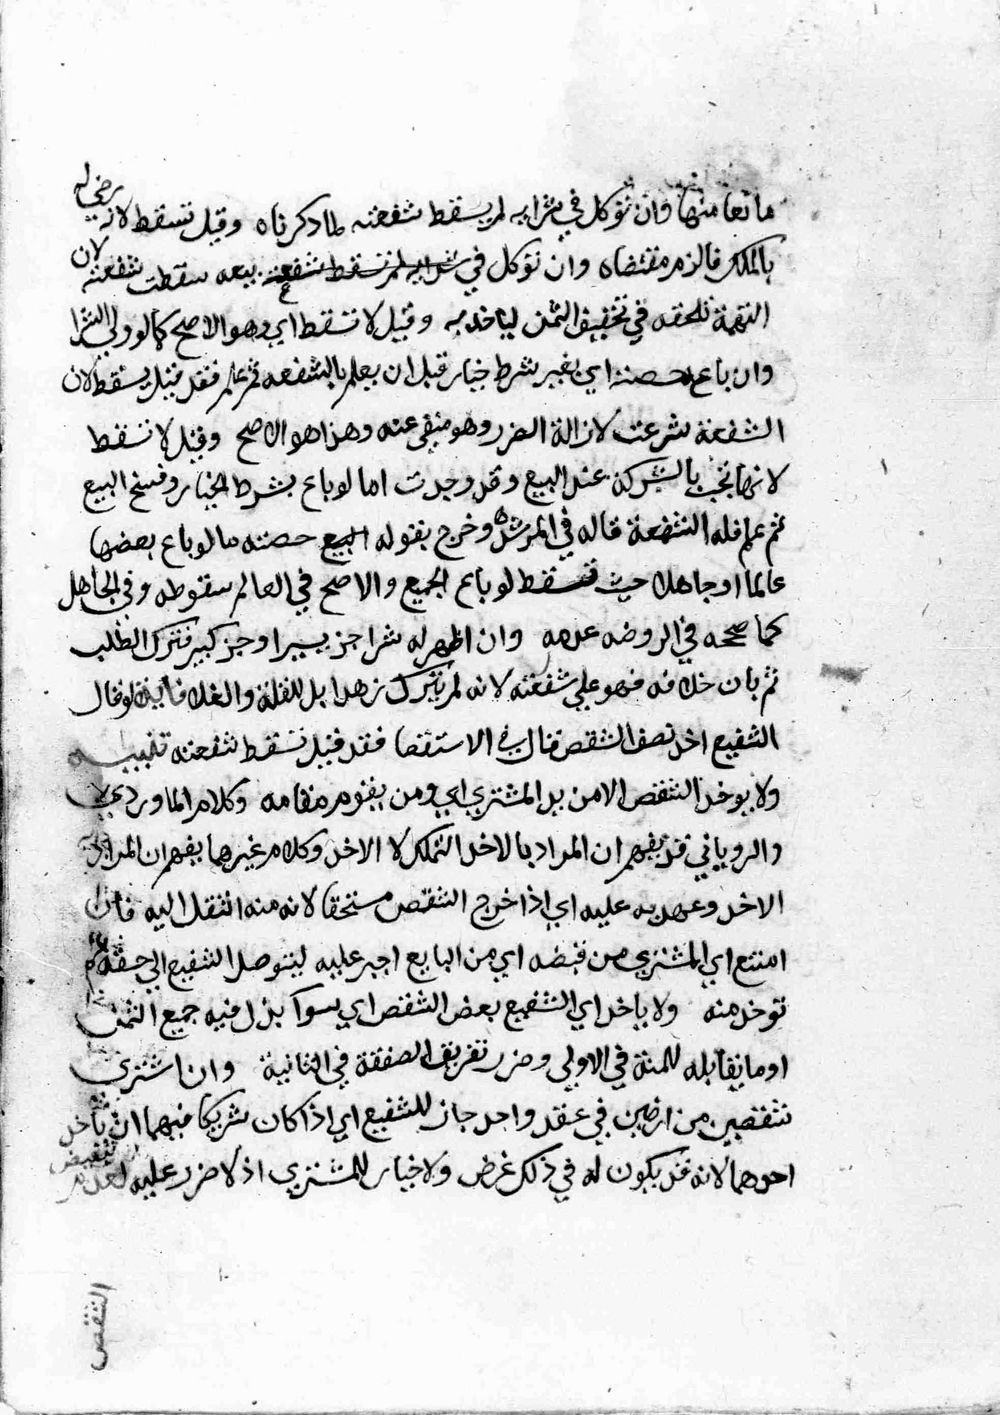 مانعا منها وان توكل في شرايه لم يسقط شفعته لما ذكرناه وقيل تسقط لانه رضي له
بالملك فالزم مقتضاه وان توكل في شرايه لم تسقط شفعته بيعه سقطت شفعته لان
التهمة تلحقه في تخفيف الثمن لياخذ به وقيل لا تسقط اي وهو الاصح كما لو ولي الشرا
وان باع حصته اي بغير شرط خيار قبل ان يعلم بالشفعه ثم علم فقد قيل يسقط لان
الشفعة شرعت لازالة الضرر وهو منتفي عنه وهذا هو الاصح وقيل لا تسقط
لانها تجب بالشركة عند البيع وقد وجدت اما لو باع بشرط الخيار وفسخ البيع
ثم علم فله الشفعة قاله في المرشد وخرج بقوله البيع حصته ما لو باع بعضها
عالما او جاهلا حيث تسقط لو باع الجميع والاصح في العالم سقوطه وفي الجاهل
كما صححه في الروضه عدمه وان اظهر له شرا جز يسيرا وجز كبير فترك الطلب
ثم بان خلافه فهو علي شفعته لانه لم يترك زهدا بل للقلة والغلا فاينة لو قال
الشفيع اخذ نصف الشقص فقال في الاستقصا فقد قيل تسقط شفعته تنبيه
ولا يوخذ الشقص الا من يد المشتري اي ومن يقوم مقامه وكلام الماوردي
والروياني قد يفهم ان المراد بالاخذ التملك لا الاخذ وكلام غيرهما يفهم ان المراد
الاخذ وعهدته عليه اي اذا خرج الشقص مستحقا لانه منه انتقل اليه فان
امتنع اي المشتري من قبضه اي من البايع اجبر عليه ليتوصل الشفيع الي حقه ثم
توخذ منه ولا ياخذ اي الشفيع بعض الشقص اي سوا بذل فيه جميع الثمن
او ما يقابله للمنة في الاولي وضرر تفريق الصفقة في الثانية وان اشتري
شقصين من ارضين في عقد واحد جاز للشفيع اي اذا كان شريكا فيهما ان ياخذ
احدهما لانه قد يكون له في ذلك غرض ولا خيار للمشتري اذ لا ضرر عليه لعدم تبعيض
الشقص